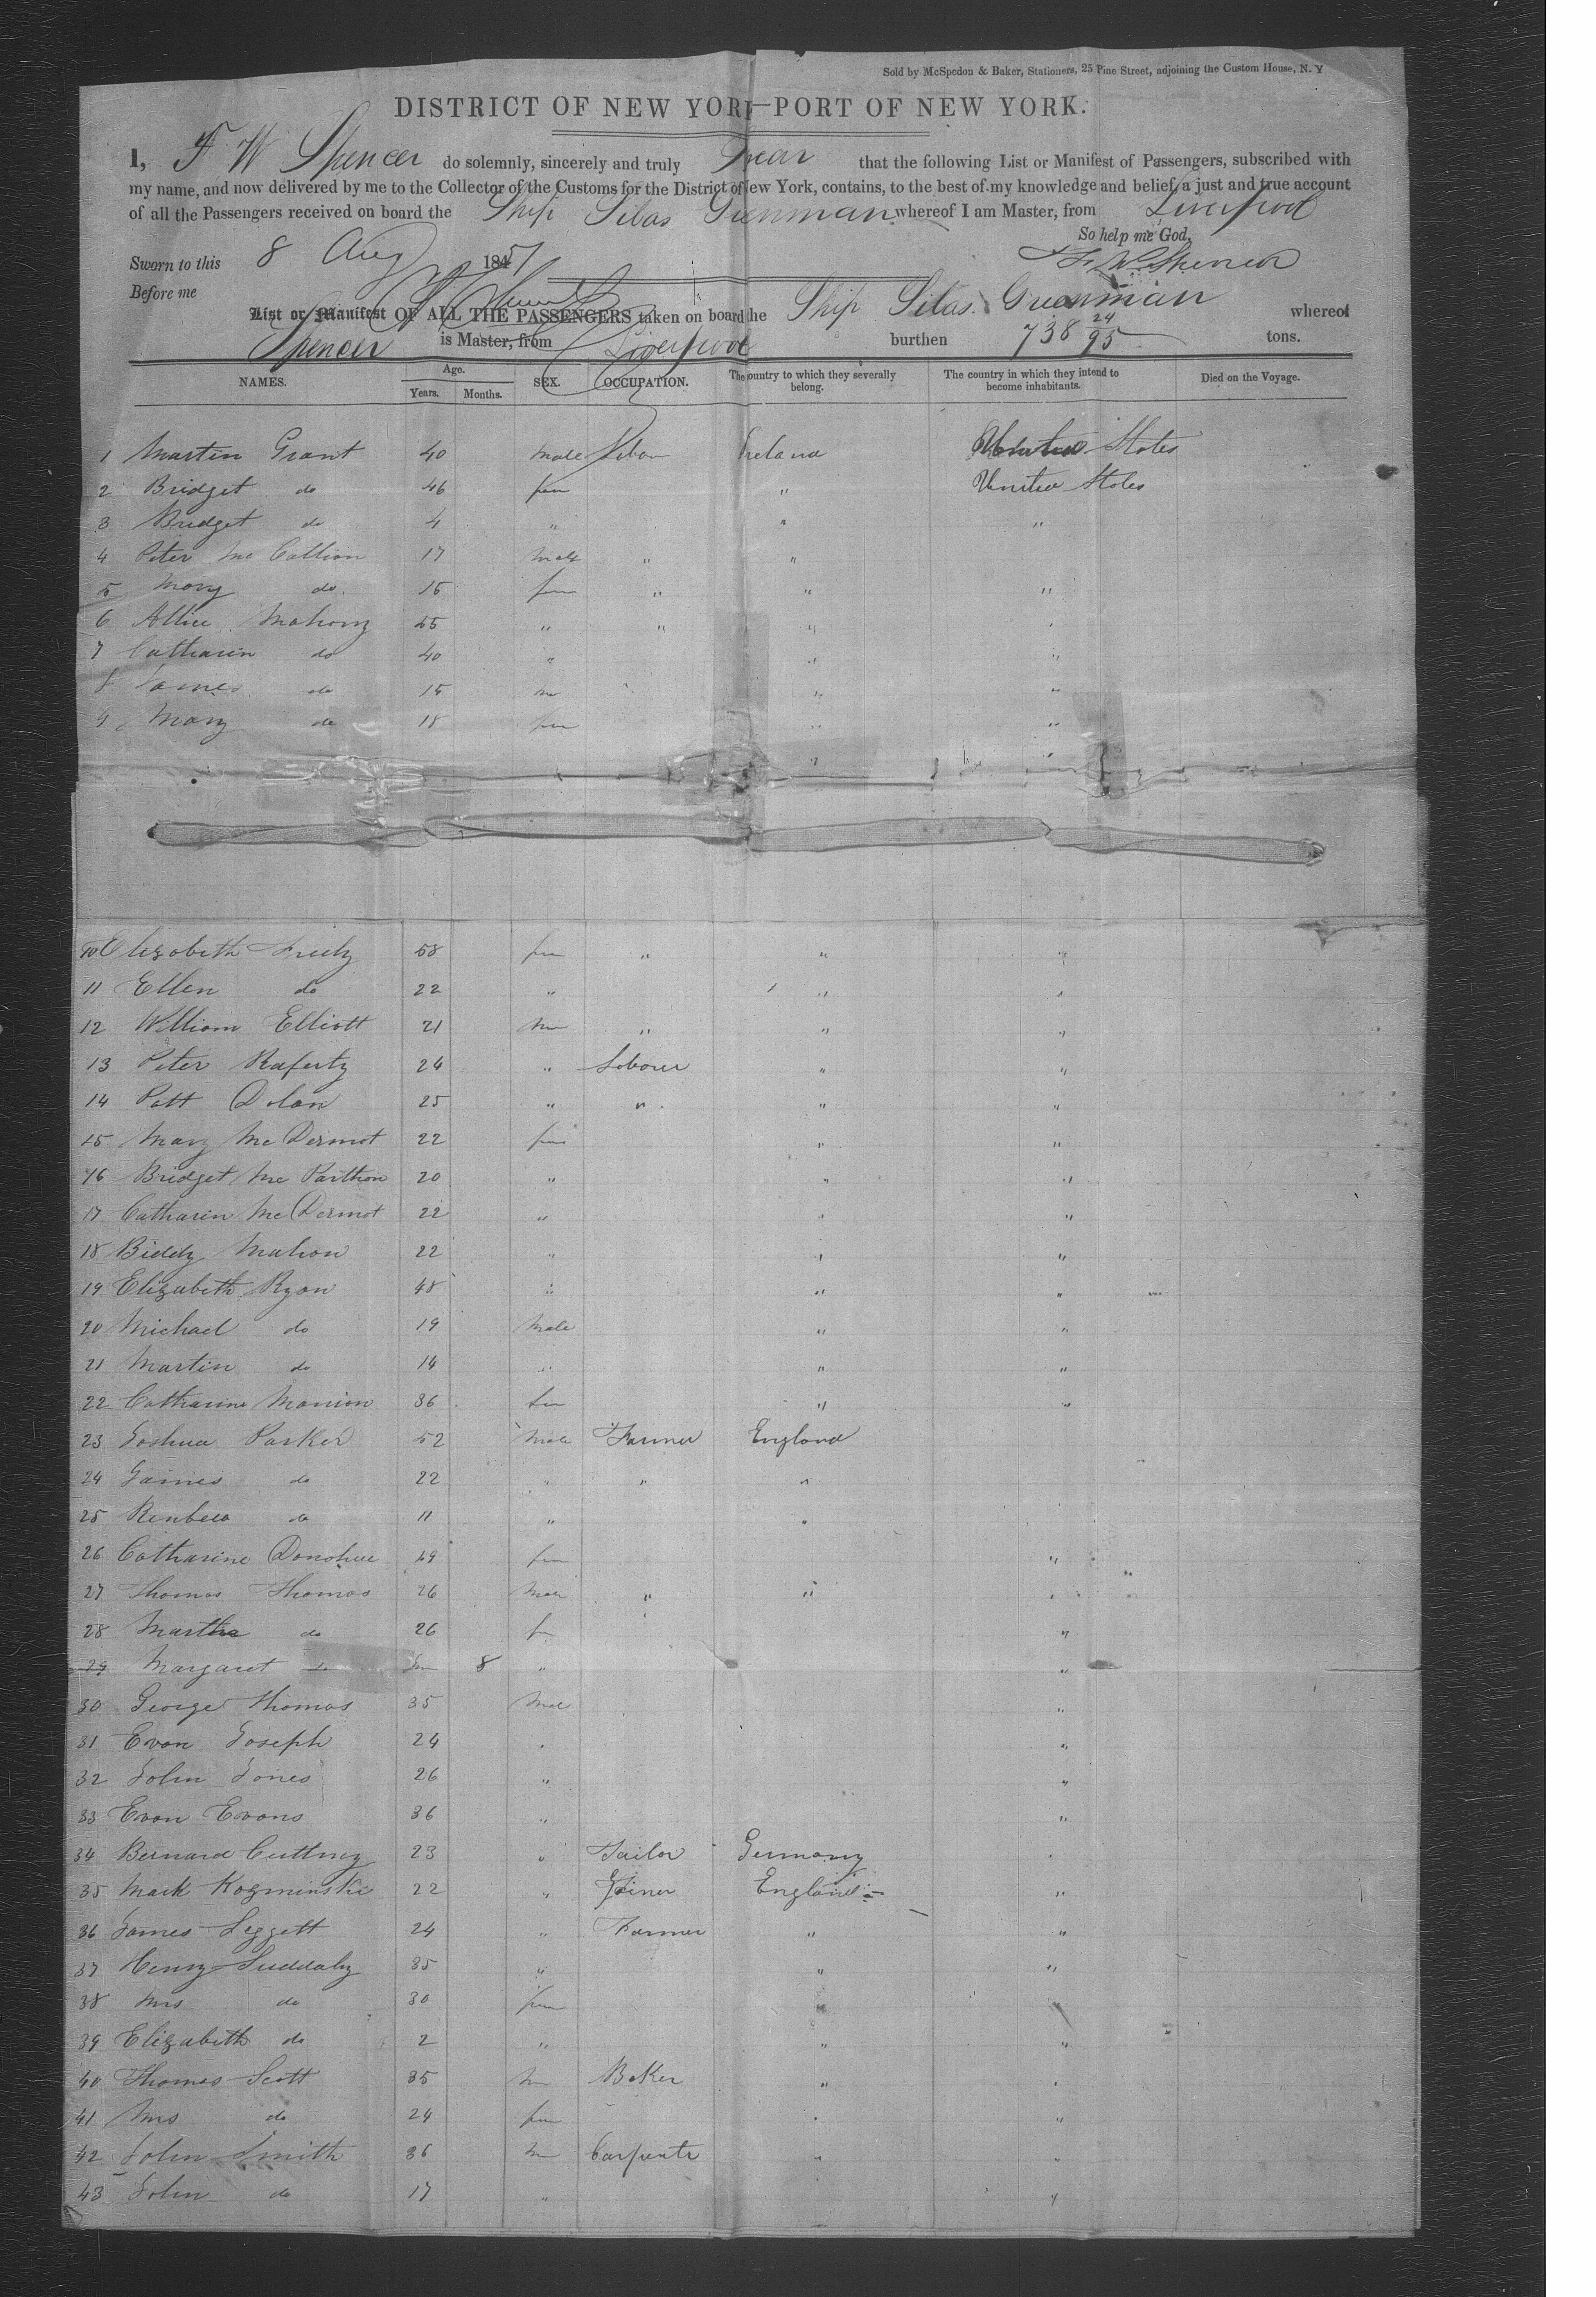 Sold by McSpedon & Baker, Stationers, 25 Pine Street, adjoining the Custom House, N. Y
DISTRICT OF NEW YOR—PORT OF NEW YORK.
I, F W Spencer do solemnly, sincerely and truly Swear that the following List or Manifest of Passengers, subscribed with
my name, and now delivered by me to the Collector of the Customs for the District of New York, contains, to the best of my knowledge and belief, a just and true account
of all the Passengers received on board the Ship Silas Greenman whereof I am Master, from Liverpool
So help me God,
Sworn to this 8 Aug 1851 F. W. Spencer
Before me
List or Manifest OF ALL THE PASSENGERS taken on board the Ship Silas Greenman whereof
Spencer is Master, from Liverpool burthen 738 24/95 tons.
NAMES. Age. Years. Months. SEX. OCCUPATION. The country to which they severally belong. The country in which they intend to become inhabitants. Died on the Voyage.
1 Martin Grant 40 Male Ireland United States
2 Bridget do 46 fem " United States
3 Bridget do 4 " " "
4 Peter Mc Callion 17 Male " "
5 Mary do 15 fem " " "
6 Allice Mahony 45 " " " "
7 Catharin do 40 " " "
8 James do 15 m " "
9 Mary do 18 fem " "
10 Elizabeth Freely 58 fem " " "
11 Ellen do 22 " " "
12 William Elliott 21 m " " "
13 Peter Raferty 24 " Labourer " "
14 Patt Dolan 25 " " " "
15 Mary Mc Dermot 22 fem " "
16 Bridget Mc Parthon 20 " " "
17 Catharin Mc Dermot 22 " " "
18 Biddy Mahon 22 " " "
19 Elizabeth Ryan 48 " " "
20 Michael do 19 Male " "
21 Martin do 14 " " "
22 Catharine Manion 36 fem " "
23 Joshua Parker 52 Male Farmer England
24 James do 22 " " "
25 Renben do 11 " "
26 Catharine Donohue 49 fem "
27 Thomas Thomas 26 Male " " "
28 Martha do 26 f "
29 Margaret do 8 " "
30 George Thomas 35 Male "
31 Evan Joseph 24 " "
32 John Jones 26 " "
33 Evan Evans 36 " "
34 Bernard 23 " Tailor Germany "
35 Mark Kozminskie 22 " Joiner England "
36 James Leggett 24 " Farmer " "
37 Henry Suddaby 35 " " "
38 Mrs do 30 fem " "
39 Elizabeth do 2 " " "
40 Thomas Scott 35 m Baker " "
41 Mrs do 24 fem " "
42 John Smith 36 m Carpentr " "
43 John do 17 " "